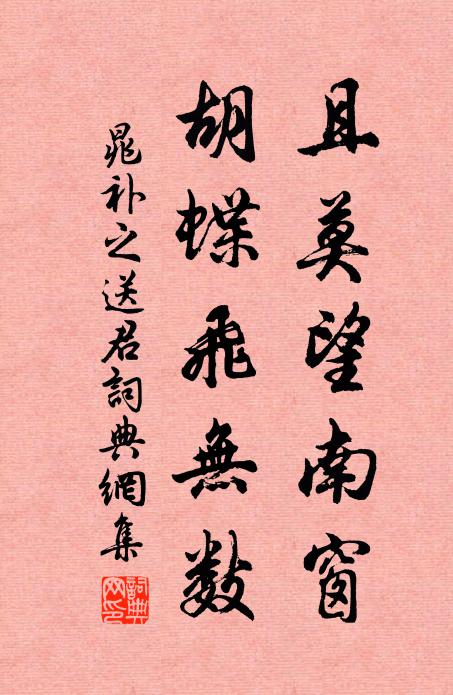 且莫望南窗
胡蝶飛無數
晁補之送君詞典網集
詞典網印